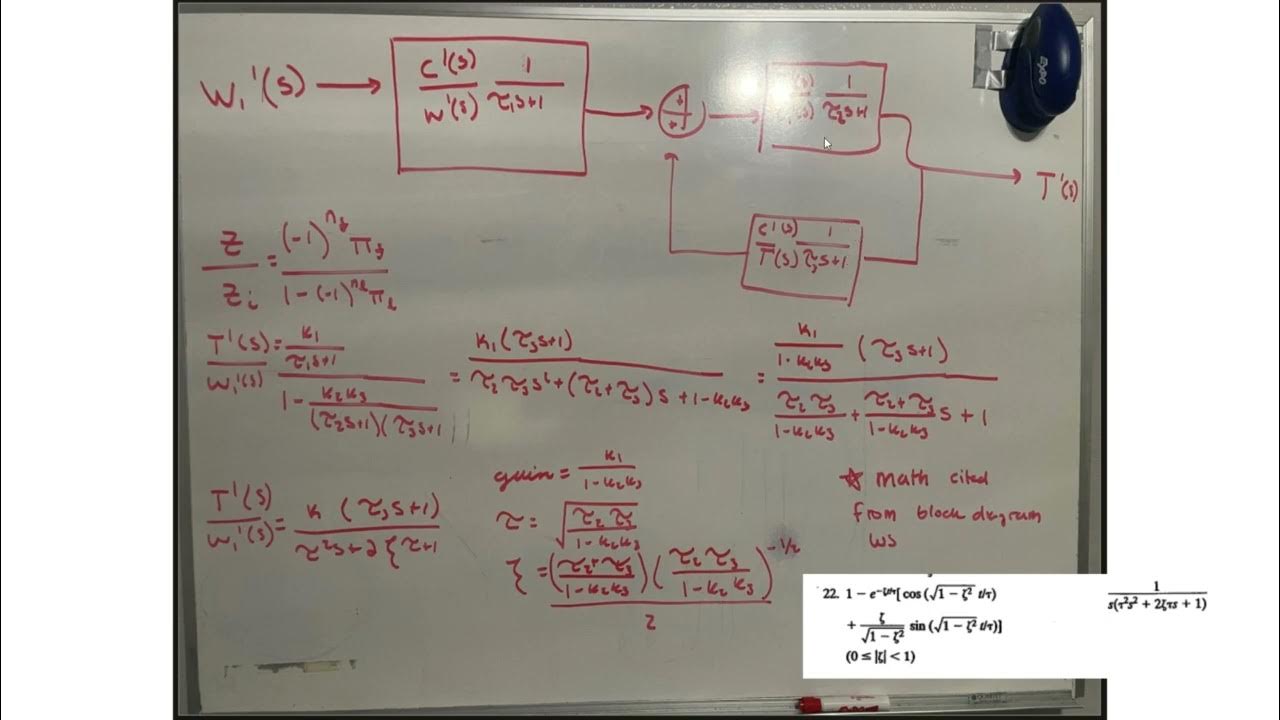 W₁'(s)
C'(s)/W'(s) 1/(τ₁s+1)
+
+
(s)/(s) 1/(τ₂s+1)
T'(s)
C'(s)/T'(s) 1/(τ₃s+1)
Expo
Z/Zᵢ = (-1)^(n_f) π_f / (1-(-1)^(n_L) π_L)
T'(s)/W₁'(s) = (K₁/(τ₁s+1)) / (1 - K₂K₃/((τ₂s+1)(τ₃s+1)) = K₁(τ₃s+1) / (τ₂τ₃s²+(τ₂+τ₃)s+1-K₂K₃) = (K₁/(1-K₂K₃) (τ₃s+1)) / (τ₂τ₃/(1-K₂K₃) + (τ₂+τ₃)/(1-K₂K₃) s+1)
T'(s)/W₁'(s) = K(τ₃s+1) / (τ²s+2ξτ+1
gain = K₁/(1-K₂K₃)
τ = √(τ₂τ₃/(1-K₂K₃))
ξ = ((τ₂+τ₃)/(1-K₂K₃))(τ₂τ₃/(1-K₂K₃))^(-1/2) / 2
☆ math cited
from block diagram
ws
22. 1 − e^(−ζt/τ)[cos (√(1 − ζ²) t/τ)
+ ζ/√(1 − ζ²) sin (√(1 − ζ²) t/τ)]
(0 ≤ |ζ| < 1)
1/(s(τ²s² + 2ζτs + 1))